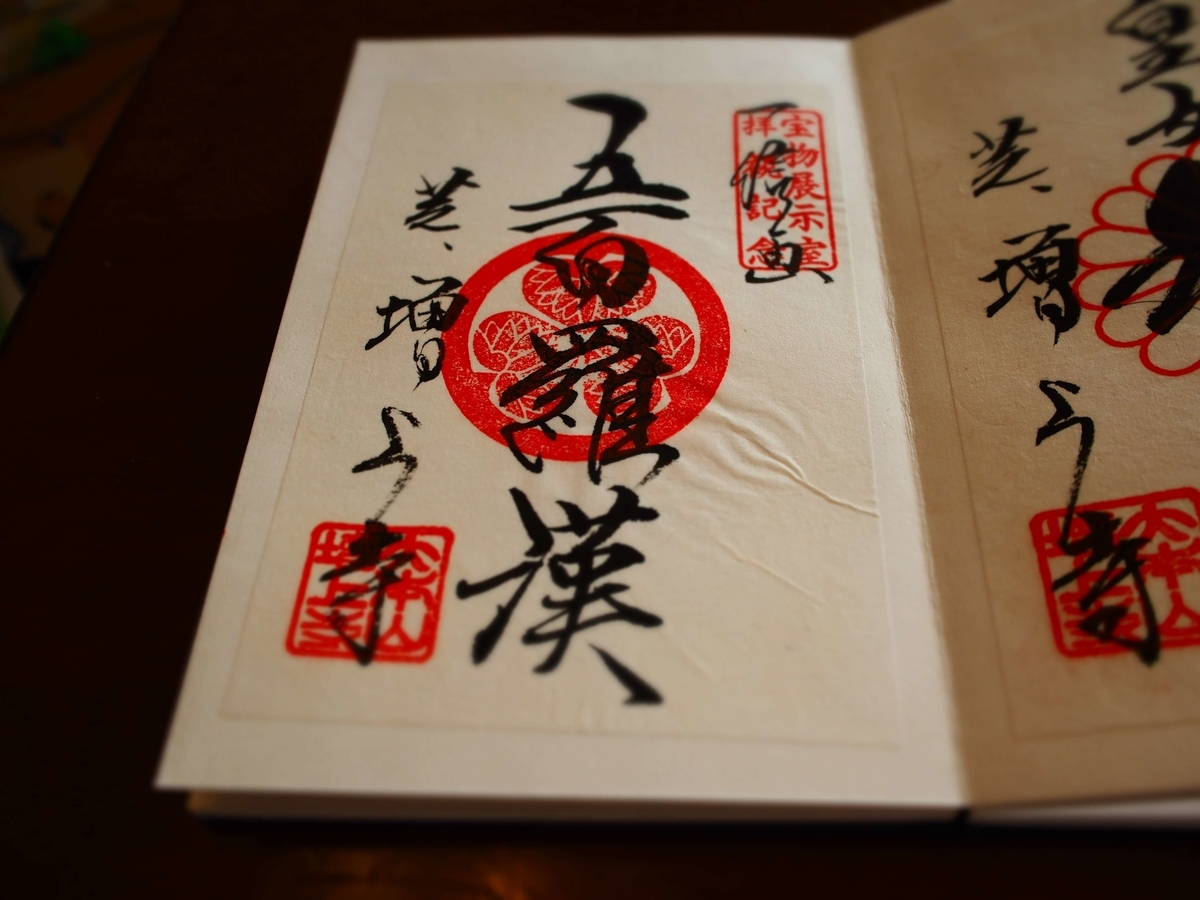 皇女
芝、増上寺
大本山
宝物展示室
拝観記念
一信画
五百羅漢
芝、増上寺
大本山
増上寺